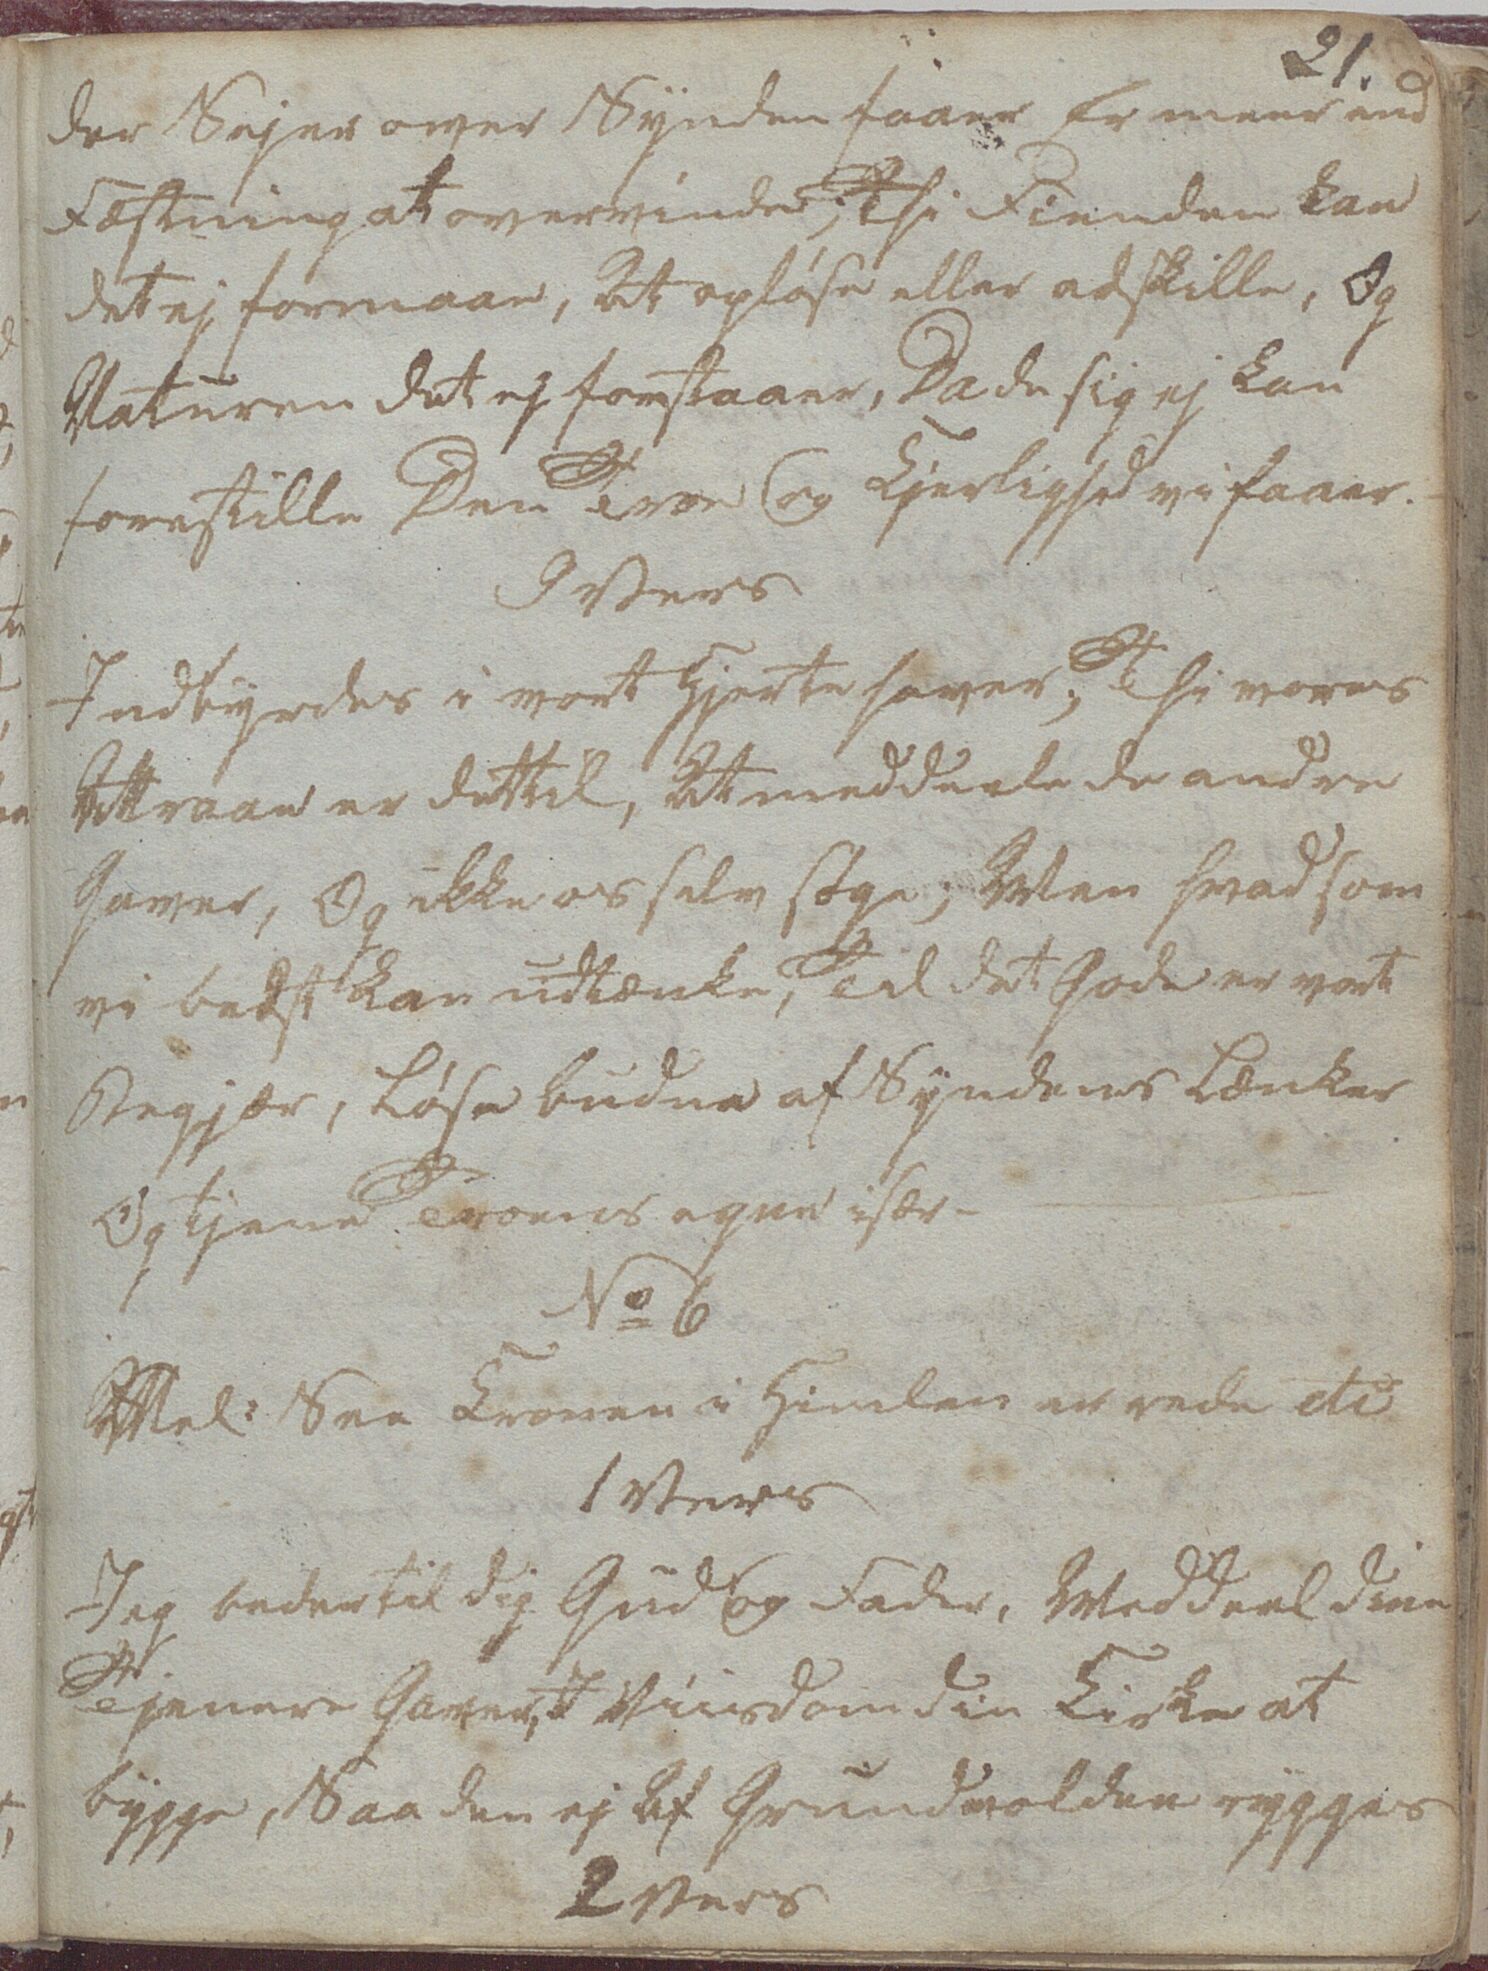 21.
der Sejer over Synden faaer Er meer end
Fæstning at overvinde; Thi Fienden kan
det ej formaae, At opløse eller adskille, Og
Naturen det ej forstaaer, Da de sig ej kan
forestille Den Troe og Kjerlighed vi faaer.
9 Vers
Indbyrdes i vort Hjerte haver; Thi vores
Attraae er dettil, At meddeele de andre
Gaver, Og ikke os selv søge; Men hvad som
vi bedst kan udtænke, Til det Gode er vort
Begjær, Løse budne af Syndens Lænker
Og tjene Troens egne især-
No 6
Mel: See Kronen i Himlen er rede etc
1 Vers
Jeg beder til dig Gud og Fader, Meddeel dine
Tjenere Gaver, I Viisdom din Kirke at
bygge, Saa den ej Af Grundvolden rygges
2 Vers